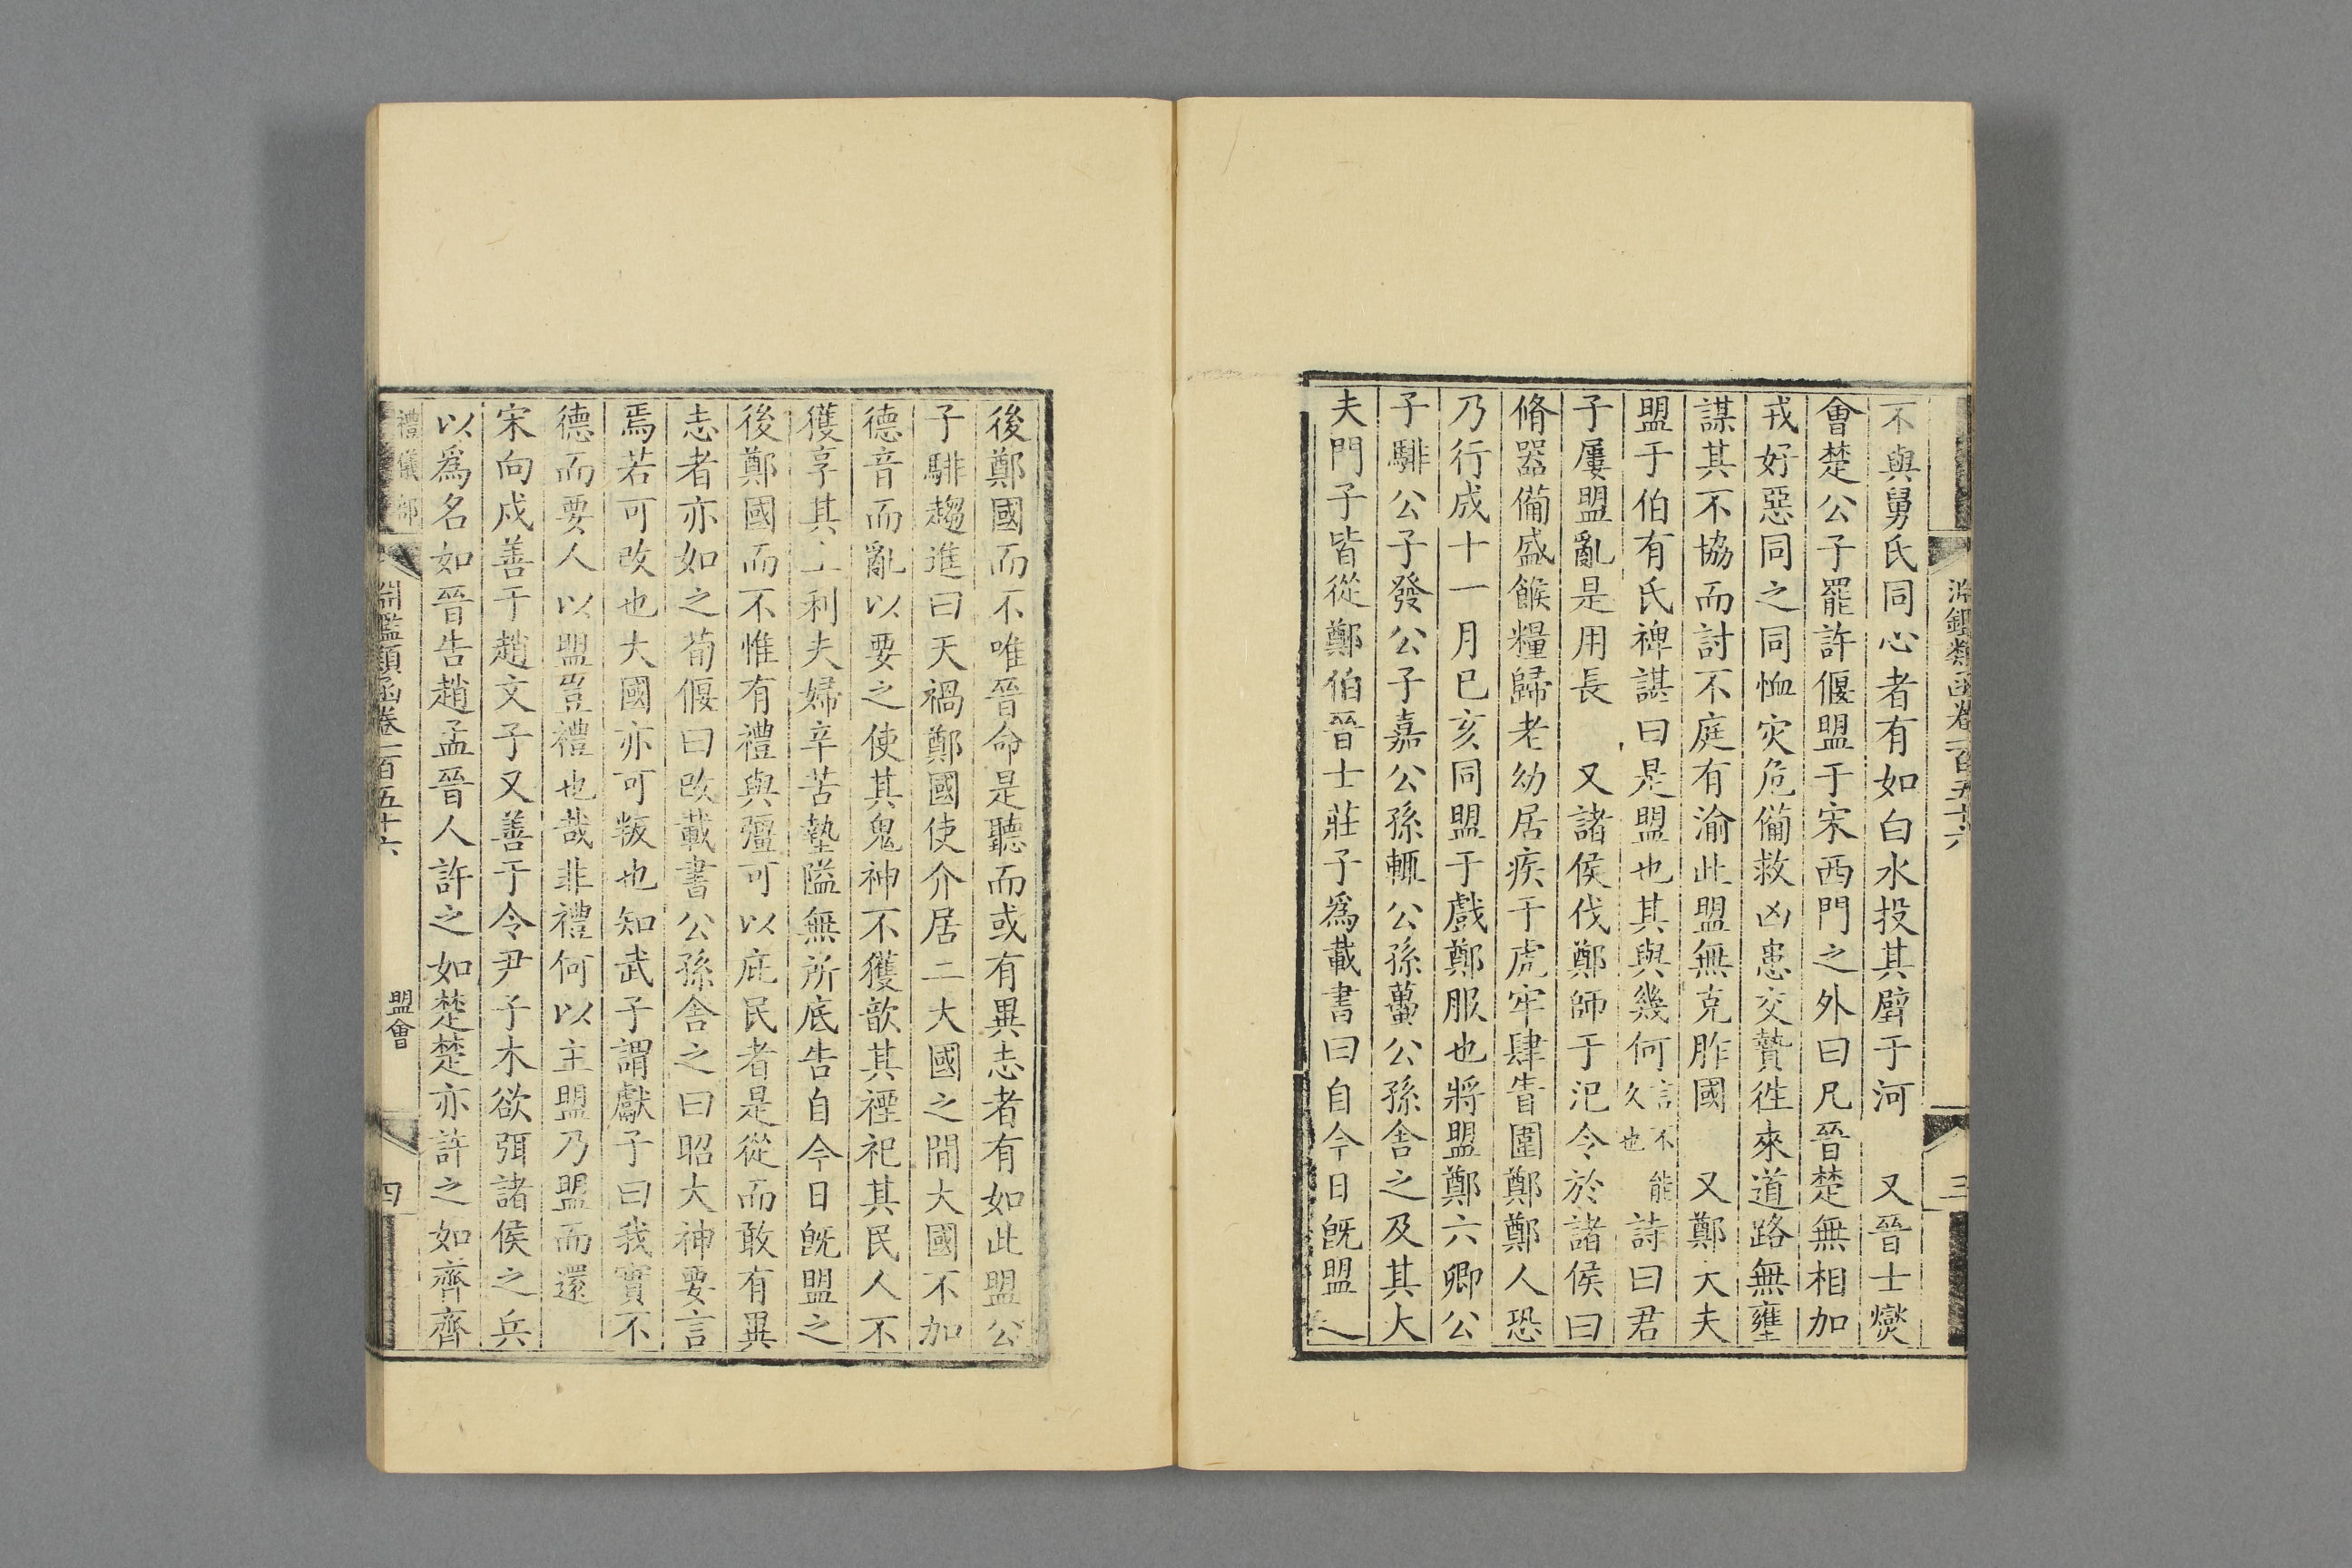 淵鑑類函卷一百五十六
三
不與舅氏同心者有如白水投其璧于河　又晉士燮
會楚公子罷許偃盟于宋西門之外曰凡晉楚無相加
戎好惡同之同恤灾危備救凶患交贄徃來道路無壅
謀其不協而討不庭有渝此盟無克胙國　又鄭大夫
盟于伯有氏裨諶曰是盟也其與幾何言不能久也詩曰君
子屢盟亂是用長　又諸侯伐鄭師于汜令於諸侯曰
脩器備盛餱糧歸老幼居疾于虎牢肆眚圍鄭鄭人恐
乃行成十一月巳亥同盟于戲鄭服也將盟鄭六卿公
子騑公子發公子嘉公孫輒公孫蠆公孫舍之及其大
夫門子皆從鄭伯晉士莊子爲載書曰自今日旣盟之
後鄭國而不唯晉命是聽而或有異志者有如此盟公
子騑趨進曰天禍鄭國使介居二大國之間大國不加
德音而亂以要之使其鬼神不獲歆其禋祀其民人不
獲享其土利夫婦辛苦墊隘無所底告自今日旣盟之
後鄭國而不惟有禮與彊可以庇民者是從而敢有異
志者亦如之荀偃曰改載書公孫舍之曰昭大神要言
焉若可改也大國亦可叛也知武子謂獻子曰我實不
德而要人以盟豈禮也哉非禮何以主盟乃盟而還
宋向戍善于趙文子又善于令尹子木欲弭諸侯之兵
以爲名如晉告趙孟晉人許之如楚楚亦許之如齊齊
禮儀部
淵鑑類函卷一百五十六
盟會
四